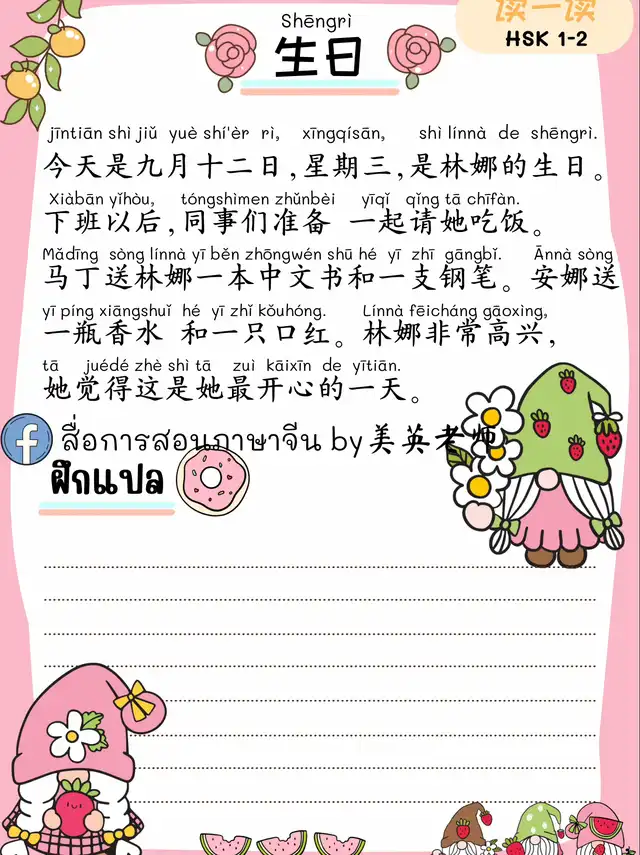 读一读
HSK 1-2
Shēngrì
生日
jīntiān shì jiǔ yuè shí'èr rì, xīngqísān, shì línnà de shēngrì.
今天是九月十二日,星期三,是林娜的生日。
Xiàbān yǐhòu, tóngshìmen zhǔnbèi yīqǐ qǐng tā chīfàn.
下班以后,同事们准备 一起请她吃饭。
Mǎdīng sòng línnà yī běn zhōngwén shū hé yī zhī gāngbǐ. Ānnà sòng
马丁送林娜一本中文书和一支钢笔。安娜送
yī píng xiāngshuǐ hé yī zhǐ kǒuhóng. Línnà fēicháng gāoxìng,
一瓶香水 和一只口红。林娜非常高兴,
tā juédé zhè shì tā zuì kāixīn de yītiān.
她觉得这是她最开心的一天。
f สื่อการสอนภาษาจีน by美英老师
ฝึกแปล